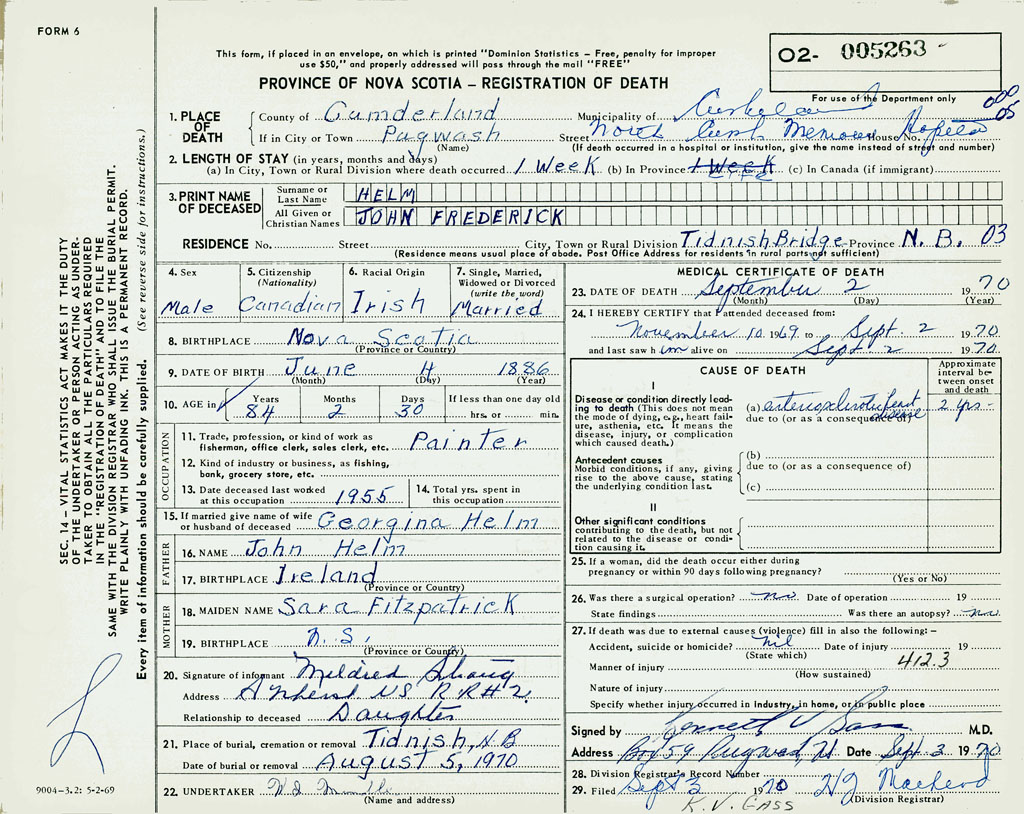 FORM 6
This form, if placed in an envelope, on which is printed "Dominion Statistics – Free, penalty for improper
use $50," and properly addressed will pass through the mail "FREE"
02- 005263
PROVINCE OF NOVA SCOTIA – REGISTRATION OF DEATH
For use of the Department only
1. PLACE OF DEATH
County of Cumderland Municipality of
05
If in City or Town Pugwash Street North Cumb Memorial House
(Name) (If death occurred in a hospital or institution, give the name instead of street and number)
2. LENGTH OF STAY (in years, months and days)
(a) In City, Town or Rural Division where death occurred 1 Week (b) In Province 1 Week (c) In Canada (if immigrant)
3. PRINT NAME OF DECEASED
Surname or Last Name HELM
All Given or Christian Names JOHN FREDERICK
RESIDENCE No. Street City, Town or Rural Division Tidnish Bridge Province N.B. 03
(Residence means usual place of abode. Post Office Address for residents in rural parts not sufficient)
4. Sex Male
5. Citizenship (Nationality) Canadian
6. Racial Origin Irish
7. Single, Married, Widowed or Divorced (write the word) Married
8. BIRTHPLACE Nova Scotia
(Province or Country)
9. DATE OF BIRTH June 4 1886
(Month) (Day) (Year)
10. AGE in Years 84 Months 2 Days 30 If less than one day old hrs. or min.
OCCUPATION
11. Trade, profession, or kind of work as
fisherman, office clerk, sales clerk, etc. Painter
12. Kind of industry or business, as fishing,
bank, grocery store, etc.
13. Date deceased last worked
at this occupation 1955
14. Total yrs. spent in
this occupation
15. If married give name of wife
or husband of deceased Georgina Helm
FATHER
16. NAME John Helm
17. BIRTHPLACE Ireland
(Province or Country)
MOTHER
18. MAIDEN NAME Sara Fitzpatrick
19. BIRTHPLACE N.S.
(Province or Country)
20. Signature of informant Mildred
Address Amherst NS RR#2
Relationship to deceased Daughter
21. Place of burial, cremation or removal Tidnish, NB
Date of burial or removal August 5, 1970
22. UNDERTAKER
(Name and address)
MEDICAL CERTIFICATE OF DEATH
23. DATE OF DEATH September 2 1970
(Month) (Day) (Year)
24. I HEREBY CERTIFY that I attended deceased from:
November 10 1969 to Sept. 2 1970
and last saw him alive on Sept. 2 1970
CAUSE OF DEATH
Approximate interval between onset and death
I
Disease or condition directly leading to death (This does not mean the mode of dying, e.g., heart failure, asthenia, etc. It means the disease, injury, or complication which caused death.)
(a) arteriosclerotic heart disease 2 yrs-
due to (or as a consequence of)
Antecedent causes
Morbid conditions, if any, giving rise to the above cause, stating the underlying condition last.
(b)
due to (or as a consequence of)
(c)
II
Other significant conditions
contributing to the death, but not related to the disease or condition causing it.
25. If a woman, did the death occur either during
pregnancy or within 90 days following pregnancy?
(Yes or No)
26. Was there a surgical operation? no Date of operation 19
State findings Was there an autopsy? no
27. If death was due to external causes (violence) fill in also the following: –
Accident, suicide or homicide? nil Date of injury 19
(State which) 412.3
Manner of injury
(How sustained)
Nature of injury
Specify whether injury occurred in Industry, in home, or in public place
Signed by Kenneth V Gass M.D.
Address Box 59 Pugwash, NS Date Sept 3 1970
28. Division Registrar's Record Number
29. Filed Sept 3 1970 HJ MacLeod
(Division Registrar)
K.V. GASS
SEC. 14 – VITAL STATISTICS ACT MAKES IT THE DUTY
OF THE UNDERTAKER OR PERSON ACTING AS UNDER-
TAKER TO OBTAIN ALL THE PARTICULARS REQUIRED
IN THE "REGISTRATION OF DEATH" AND TO FILE THE
SAME WITH THE DIVISION REGISTRAR WHO SHALL ISSUE THE BURIAL PERMIT.
WRITE PLAINLY WITH UNFADING INK. THIS IS A PERMANENT RECORD.
Every item of information should be carefully supplied. (See reverse side for instructions.)
9004-3.2: 5-2-69